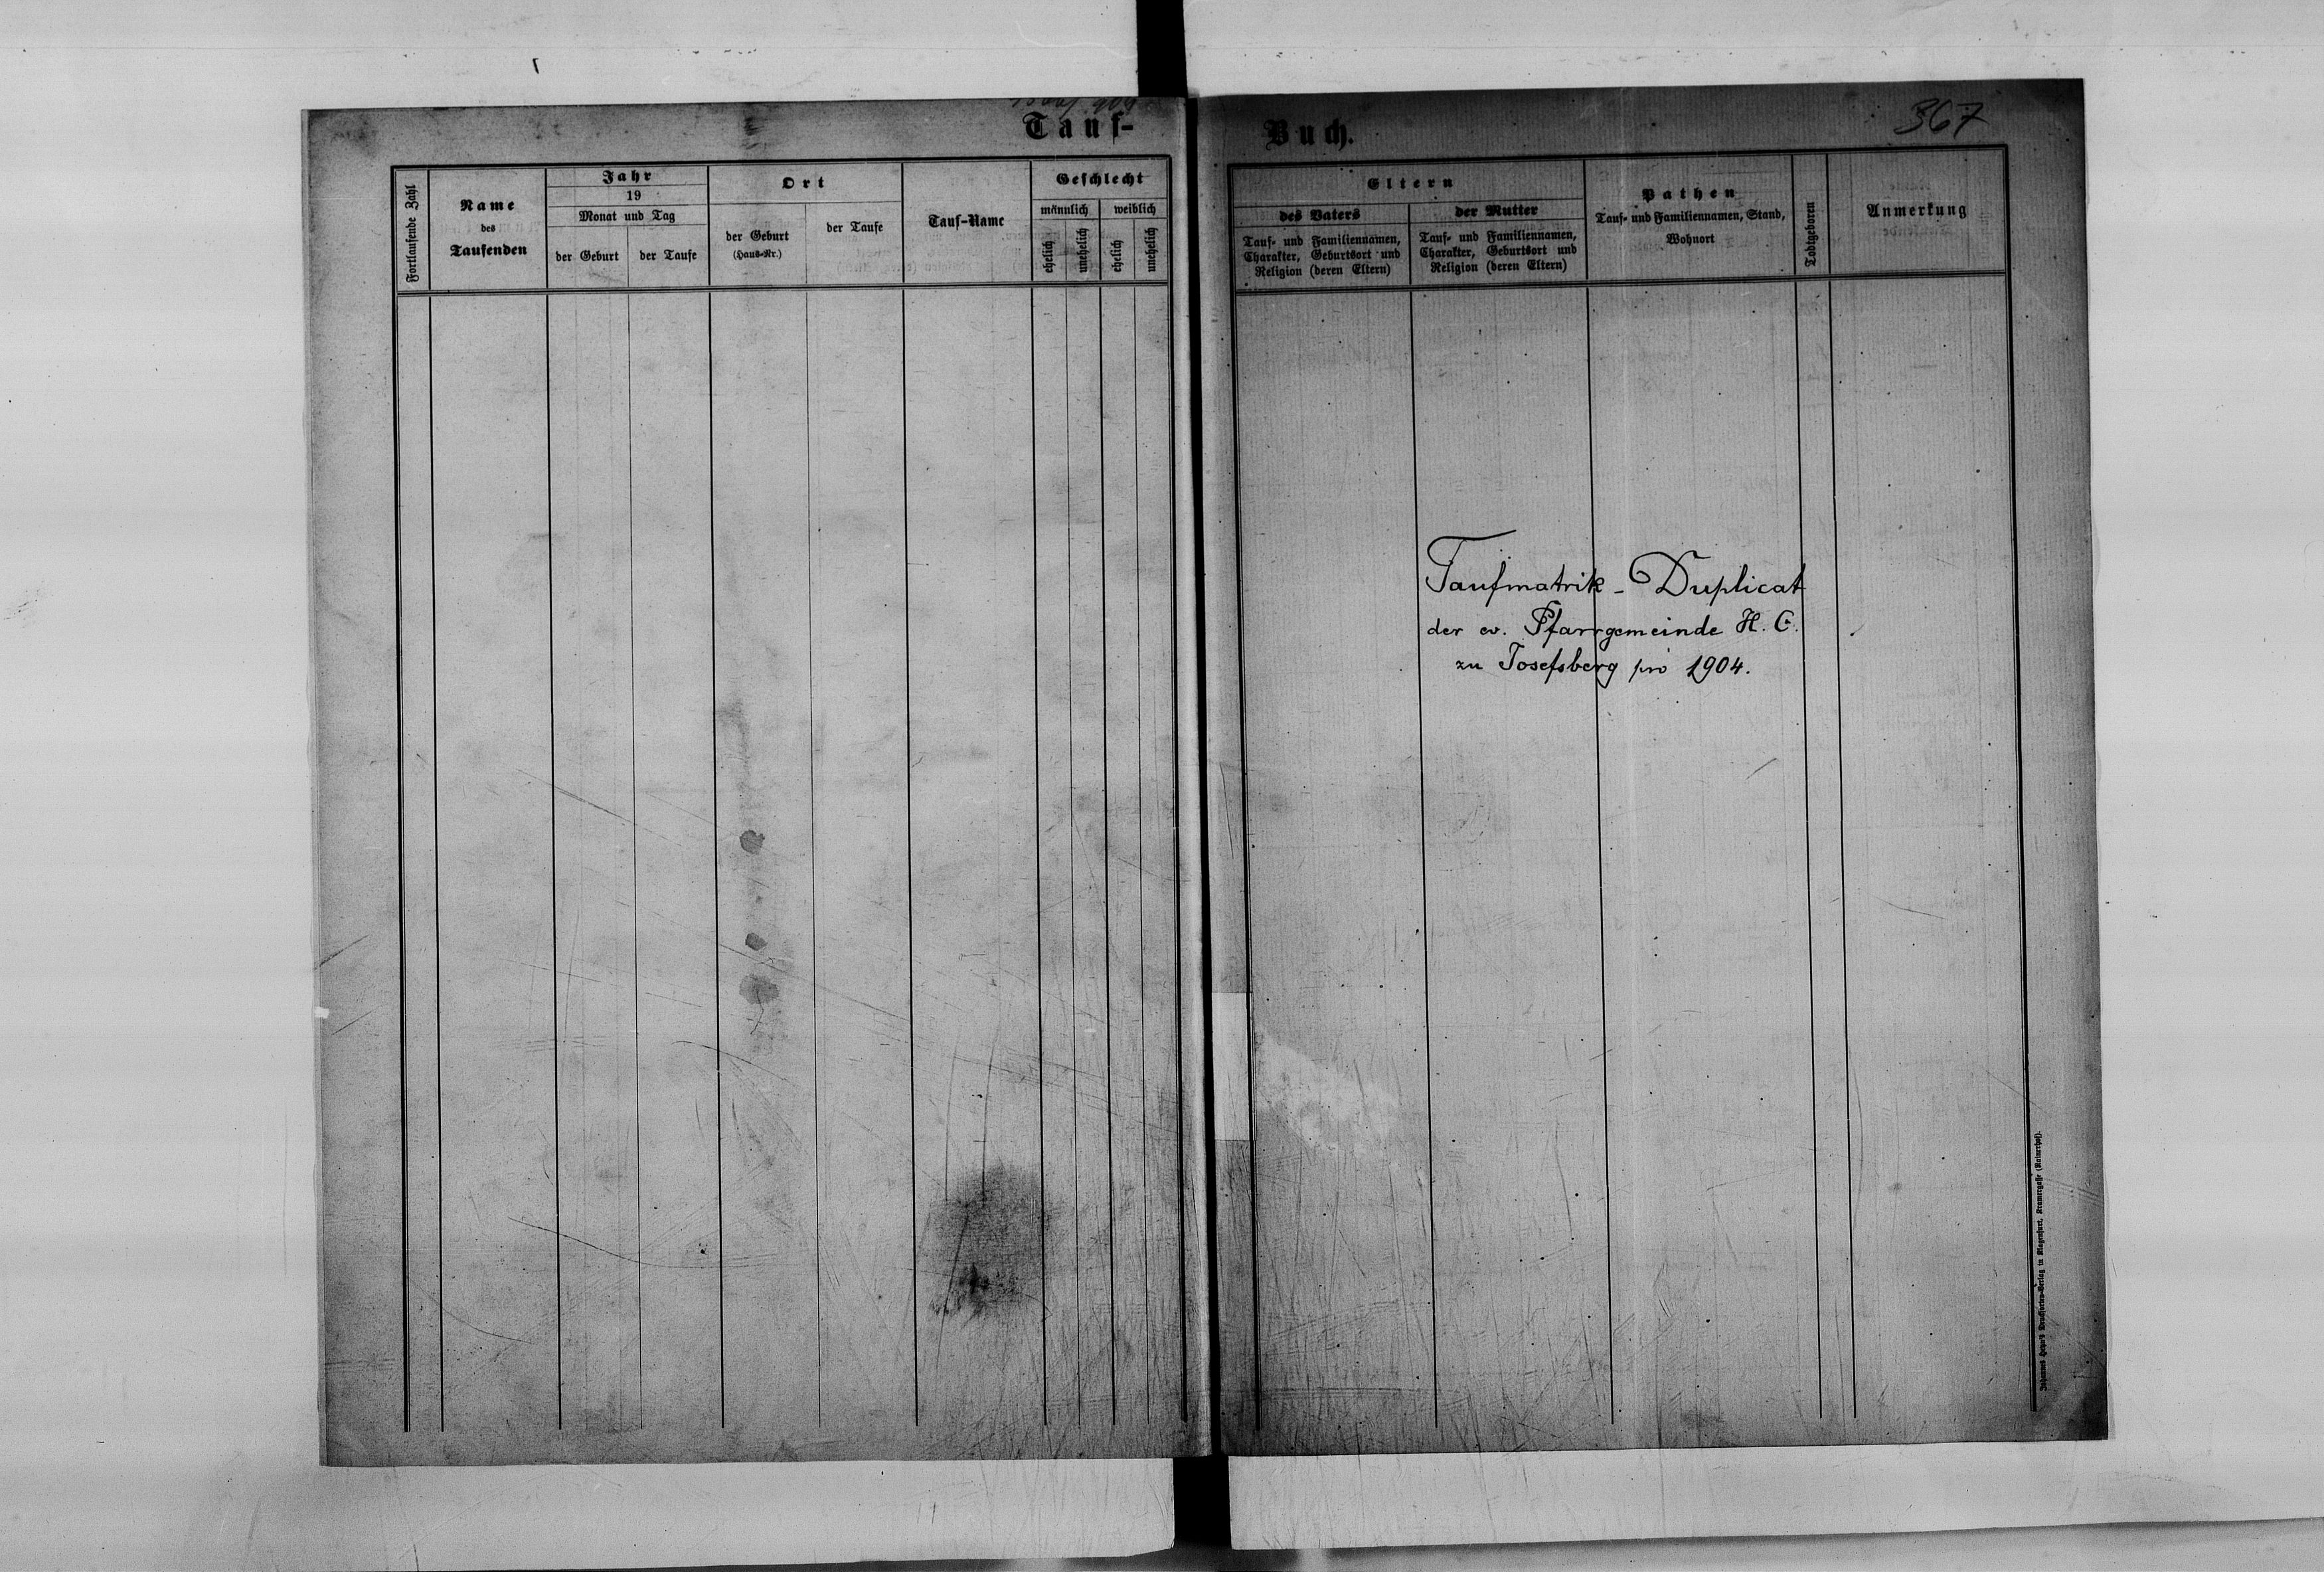 Tauf-
Fortlaufende Zahl
Name
des
Taufenden
Jahr
19
Monat und Tag
der Geburt
der Taufe
Ort
der Geburt
(Haus-Nr.)
der Taufe
Tauf-Name
Geschlecht
männlich
weiblich
ehelich
unehelich
ehelich
unehelich
Buch.
367
Eltern
des Vaters
Tauf- und Familiennamen,
Charakter, Geburtsort und
Religion (deren Eltern)
der Mutter
Tauf- und Familiennamen,
Charakter, Geburtsort und
Religion (deren Eltern)
Pathen
Tauf- und Familiennamen, Stand,
Wohnort
Todtgeboren
Anmerkung
Taufmatrik - Duplicat
der ev. Pfarrgemeinde H. C.
zu Josefsberg pro 1904.
Johannes Heyn's Drucksorten-Verlag in Klagenfurt, Kramergasse